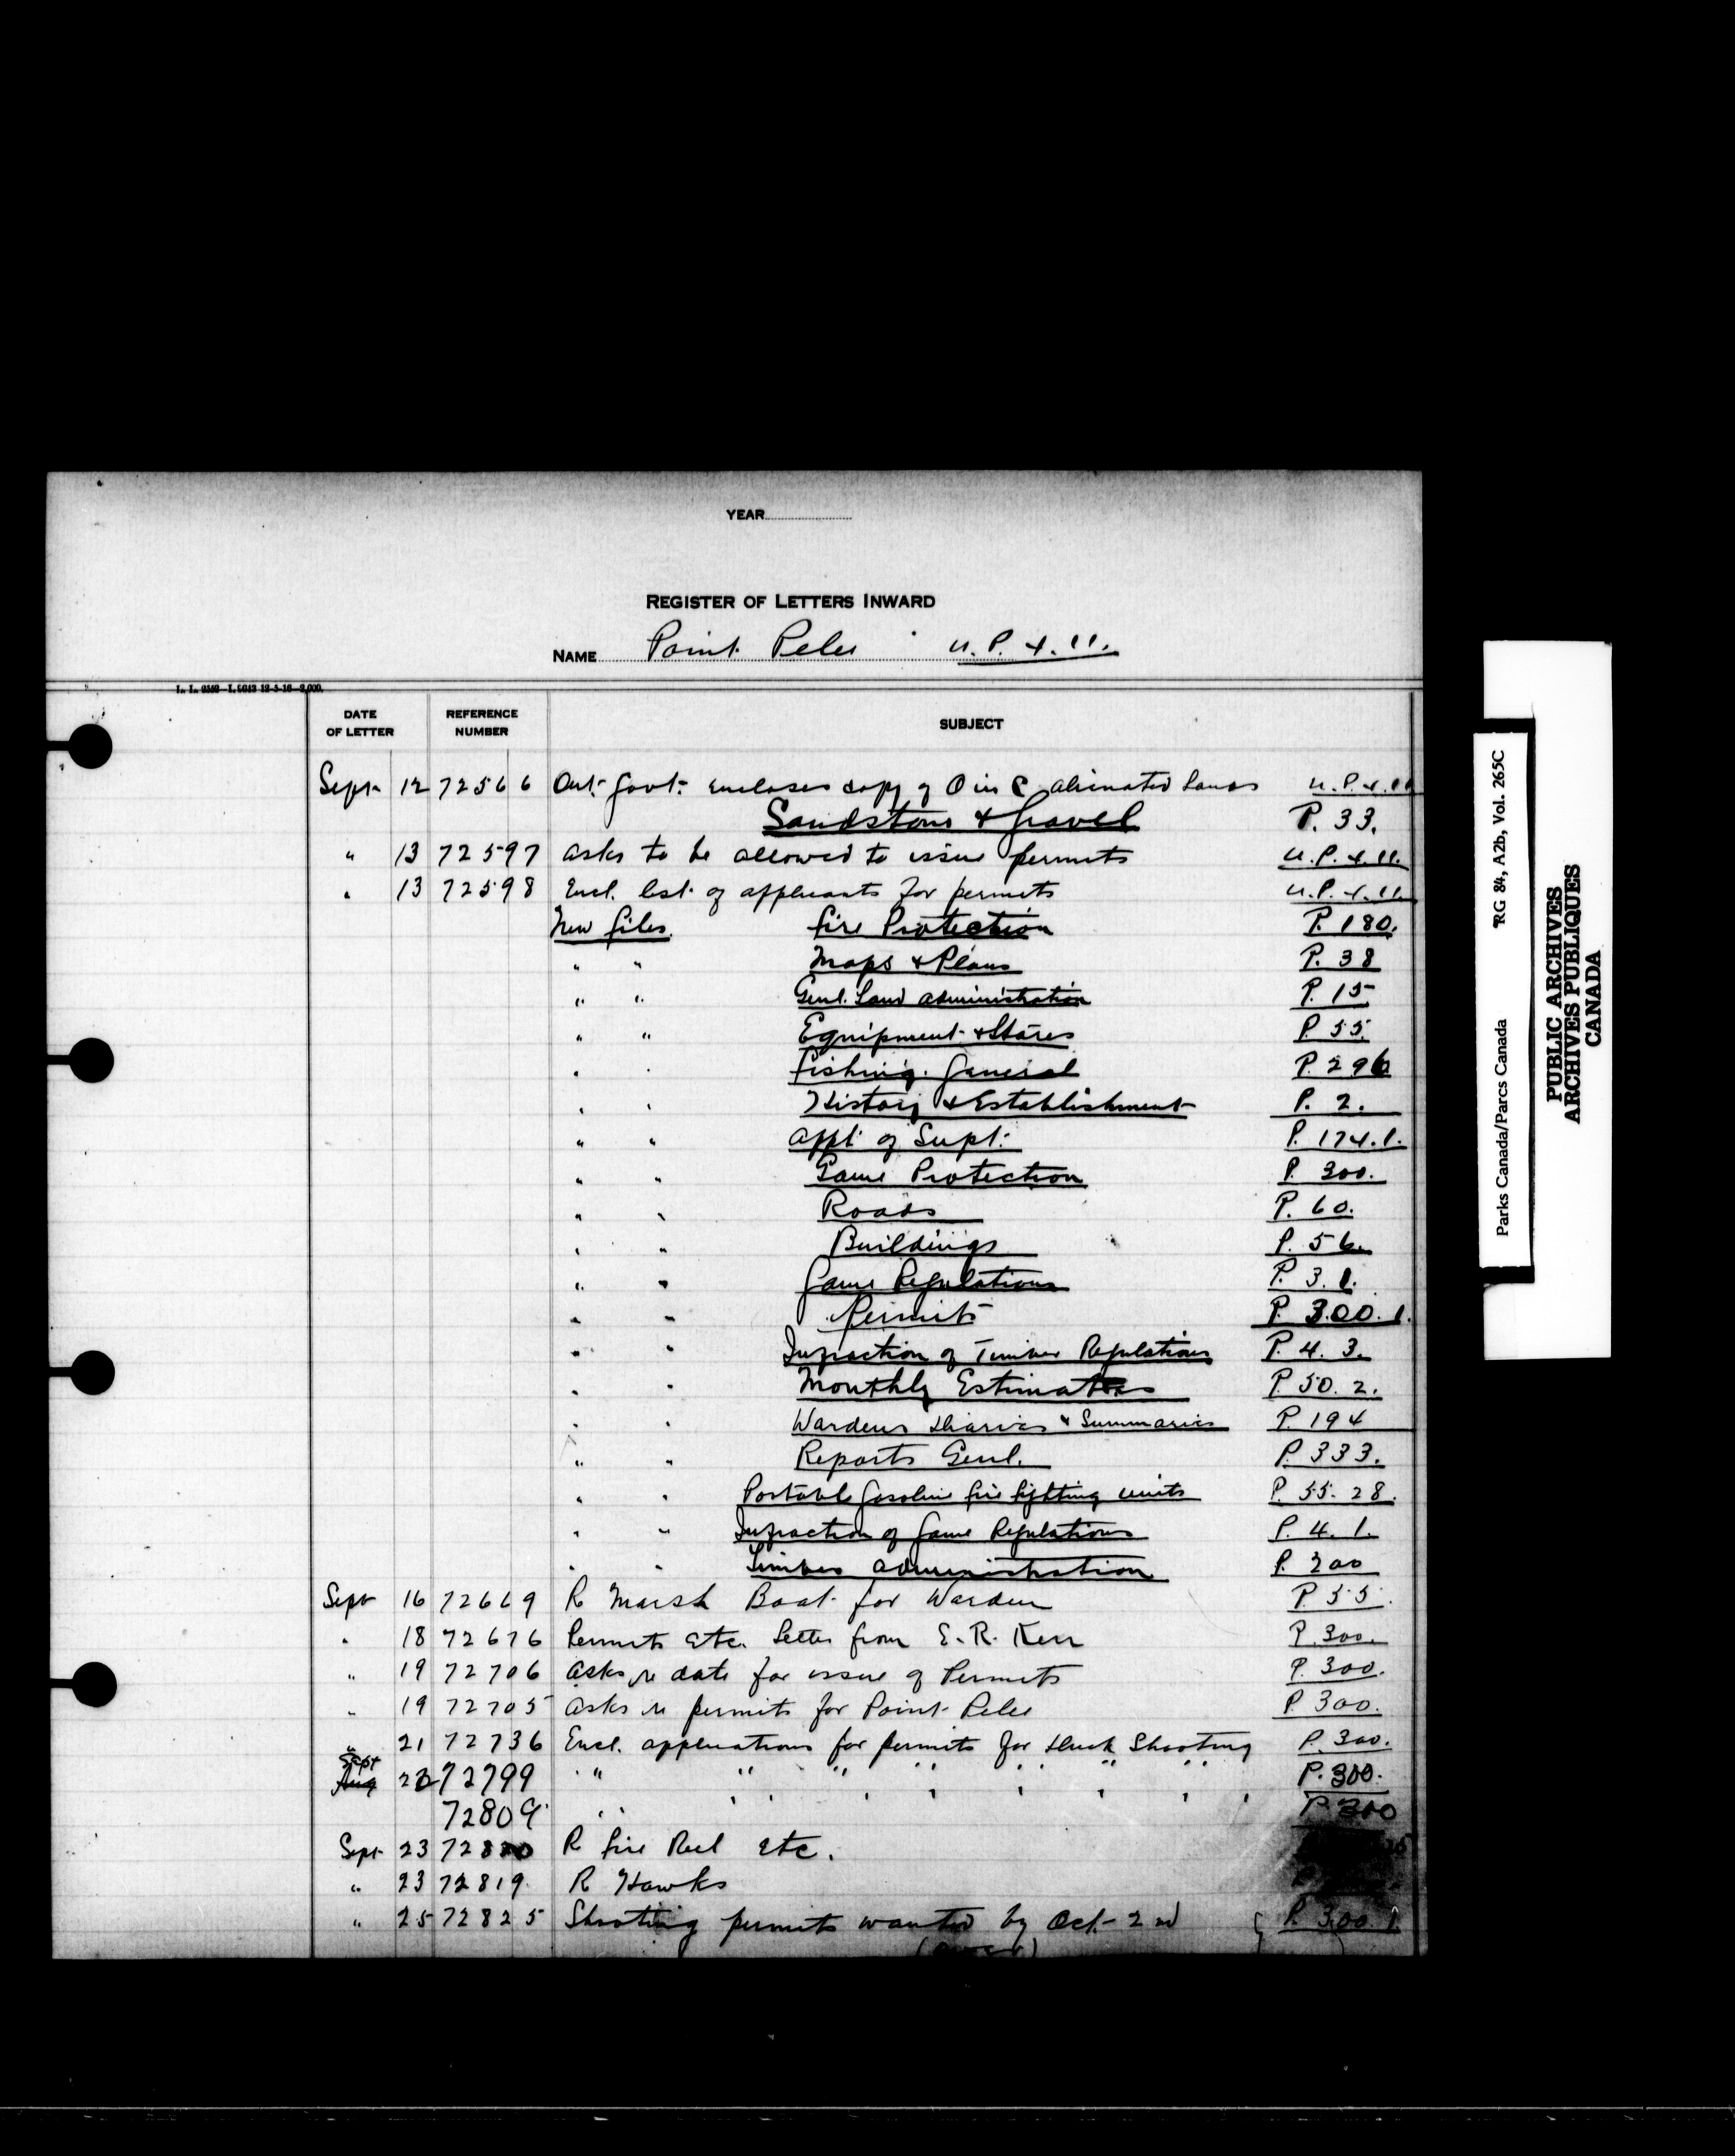 YEAR
REGISTER OF LETTERS INWARD
NAME Point Pelee U.P.4.11.
L. L. 9552—I. 5043 12-5-16—2,000.
DATE OF LETTER REFERENCE NUMBER SUBJECT
Sept 12 72566 Ont. Govt. encloses copy of O in C alienated lands U.P.4.11
Sandstone & Gravel P. 33.
" 13 72597 asks to be allowed to issue permits U.P.4.11.
" 13 72598 Encl. list of applicants for permits U.P.4.11.
New files. Fire Protection P. 180.
" " Maps & Plans P. 38
" " Genl. Land administration P. 15
" " Equipment & Stores P. 55.
" " Fishing. General P. 296
" " History & Establishment P. 2.
" " Appt. of Supt. P. 174.1.
" " Game Protection P. 300.
" " Roads P. 60.
" " Buildings P. 56.
" " Game Regulations P. 3.1.
" " Permits P. 300.1.
" " Infraction of Timber Regulations P. 4.3.
" " Monthly Estimates P. 50.2.
" " Wardens Diaries & Summaries P. 194
" " Reports Genl. P. 333.
" " Portable Gasoline fire fighting units P. 55.28.
" " Infraction of Game Regulations P. 4.1.
" " Timber administration P. 200
Sept 16 72669 R Marsh Boat for Warden P. 55.
" 18 72676 Permits etc. letter from E. R. Kerr P. 300.
" 19 72706 asks re date for issue of Permits P. 300.
" 19 72705 asks re permits for Point Pelee P. 300.
" 21 72736 Encl. applications for permits for Duck Shooting P. 300.
Sept Aug 22 72799 " " " " " " " P. 300.
72809 " " " " " " " " P. 300
Sept 23 728 R fire Reel etc.
" 23 72819. R Hawks
" 25 72825 Shooting permits wanted by Oct. 2nd P. 300.1
(over)
Parks Canada/Parcs Canada RG 84, A2b, Vol. 265C
PUBLIC ARCHIVES
ARCHIVES PUBLIQUES
CANADA